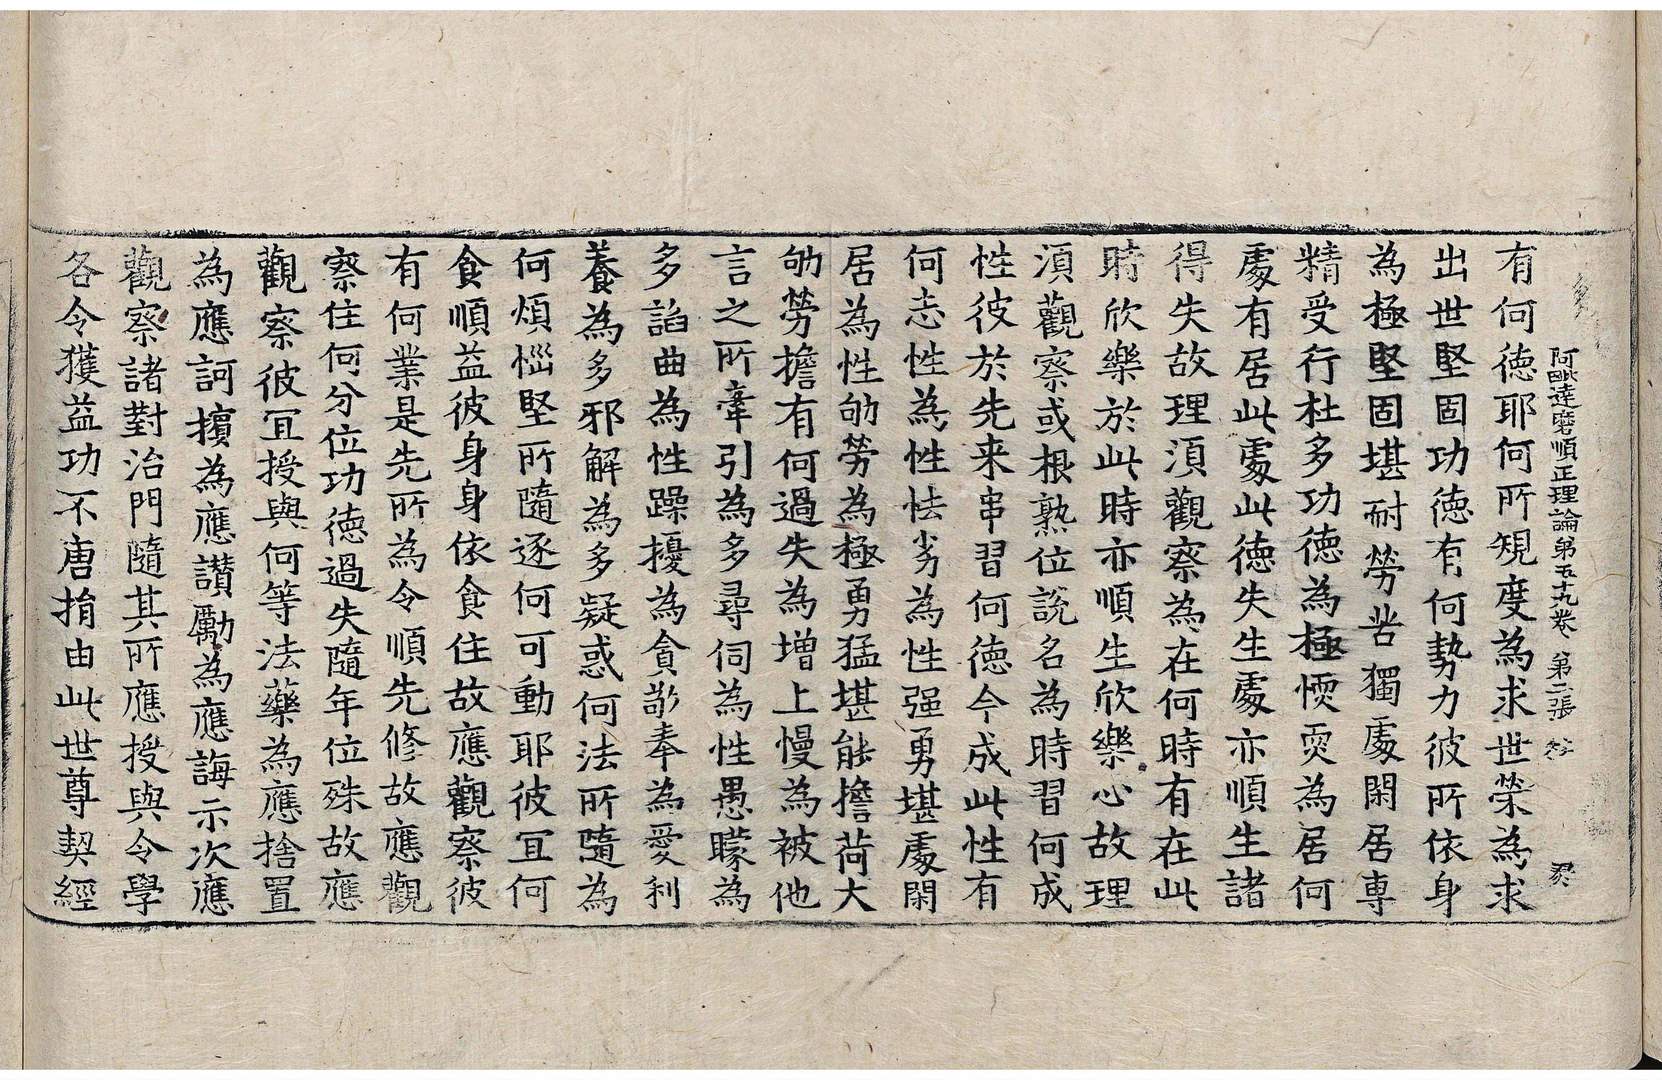 阿毗達磨順正理論第五十九卷 第二張
有何德耶何所規度為求世榮為求
出世堅固功德有何勢力彼所依身
為極堅固堪耐勞苦獨處閑居專
精受行杜多功德為極愞耎為居何
處有居此處此德失生處亦順生諸
得失故理湏觀察為在何時有在此
時欣樂於此時亦順生欣樂心故理
湏觀察或根熟位說名為時習何成
性彼於先来串習何德今成此性有
何志性為性怯劣為性强勇堪處閑
居為性劬勞為極勇猛堪能擔荷大
劬勞擔有何過失為增上慢為被他
言之所牽引為多尋伺為性愚矇為
多諂曲為性躁擾為貪敬奉為愛利
養為多邪解為多疑惑何法所隨為
何煩惱堅所隨逐何可動耶彼冝何
食順益彼身身依食住故應觀察彼
有何業是先所為令順先修故應觀
察住何分位功德過失隨年位殊故應
觀察彼冝授與何等法藥為應捨置
為應訶擯為應讃勵為應誨示次應
觀察諸對治門隨其所應授與令學
各令獲益功不唐捐由此世尊契經